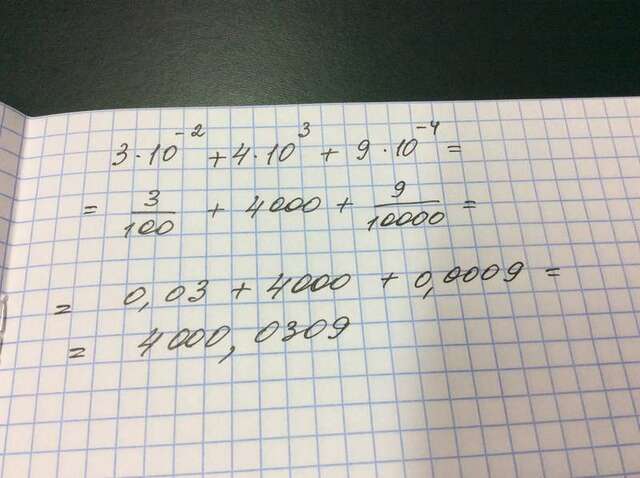 3·10⁻²+4·10³+9·10⁻⁴=
= 3/100 + 4000 + 9/10000 =
= 0,03 + 4000 + 0,0009 =
= 4000,0309